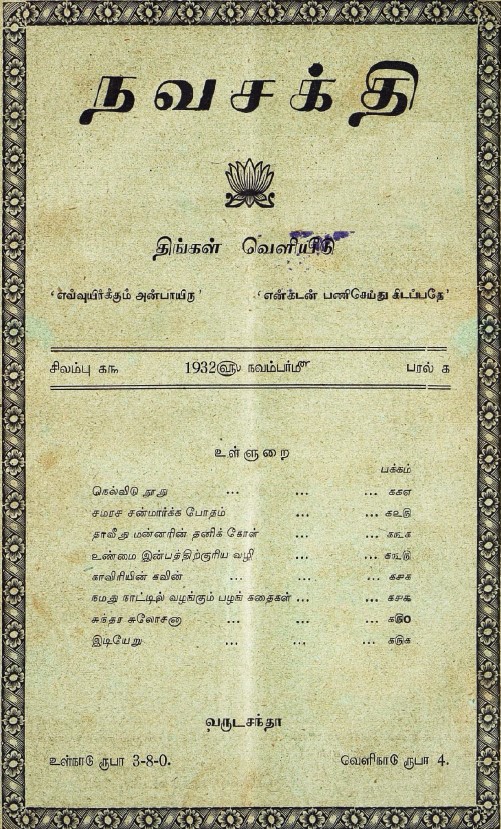 நவசக்தி
திங்கள் வெளியீடு
‘எவ்வுயிர்க்கும் அன்பாயிரு’ ‘என்கடன் பணிசெய்து கிடப்பதே’
சிலம்பு கரு 1932௵ நவம்பர்௴ பரல் க
உள்ளுறை
பக்கம்
நெல்விடு தூது ... ... ... ககஎ
சமரச சன்மார்க்க போதம் ... ... கஉடு
தாவீது மன்னரின் தனிக் கோள் ... ... கஙக
உண்மை இன்பத்திற்குரிய வழி ... ... கஙரு
காவிரியின் கவின் ... ... ... கசக
நமது நாட்டில் வழங்கும் பழங் கதைகள் ... ... கசக
சுந்தர சுலோசனா ... ... ... கரு0
இடியேறு ... ... ... கருக
வருடசந்தா
உள்நாடு ரூபா 3-8-0. வெளிநாடு ரூபா 4.